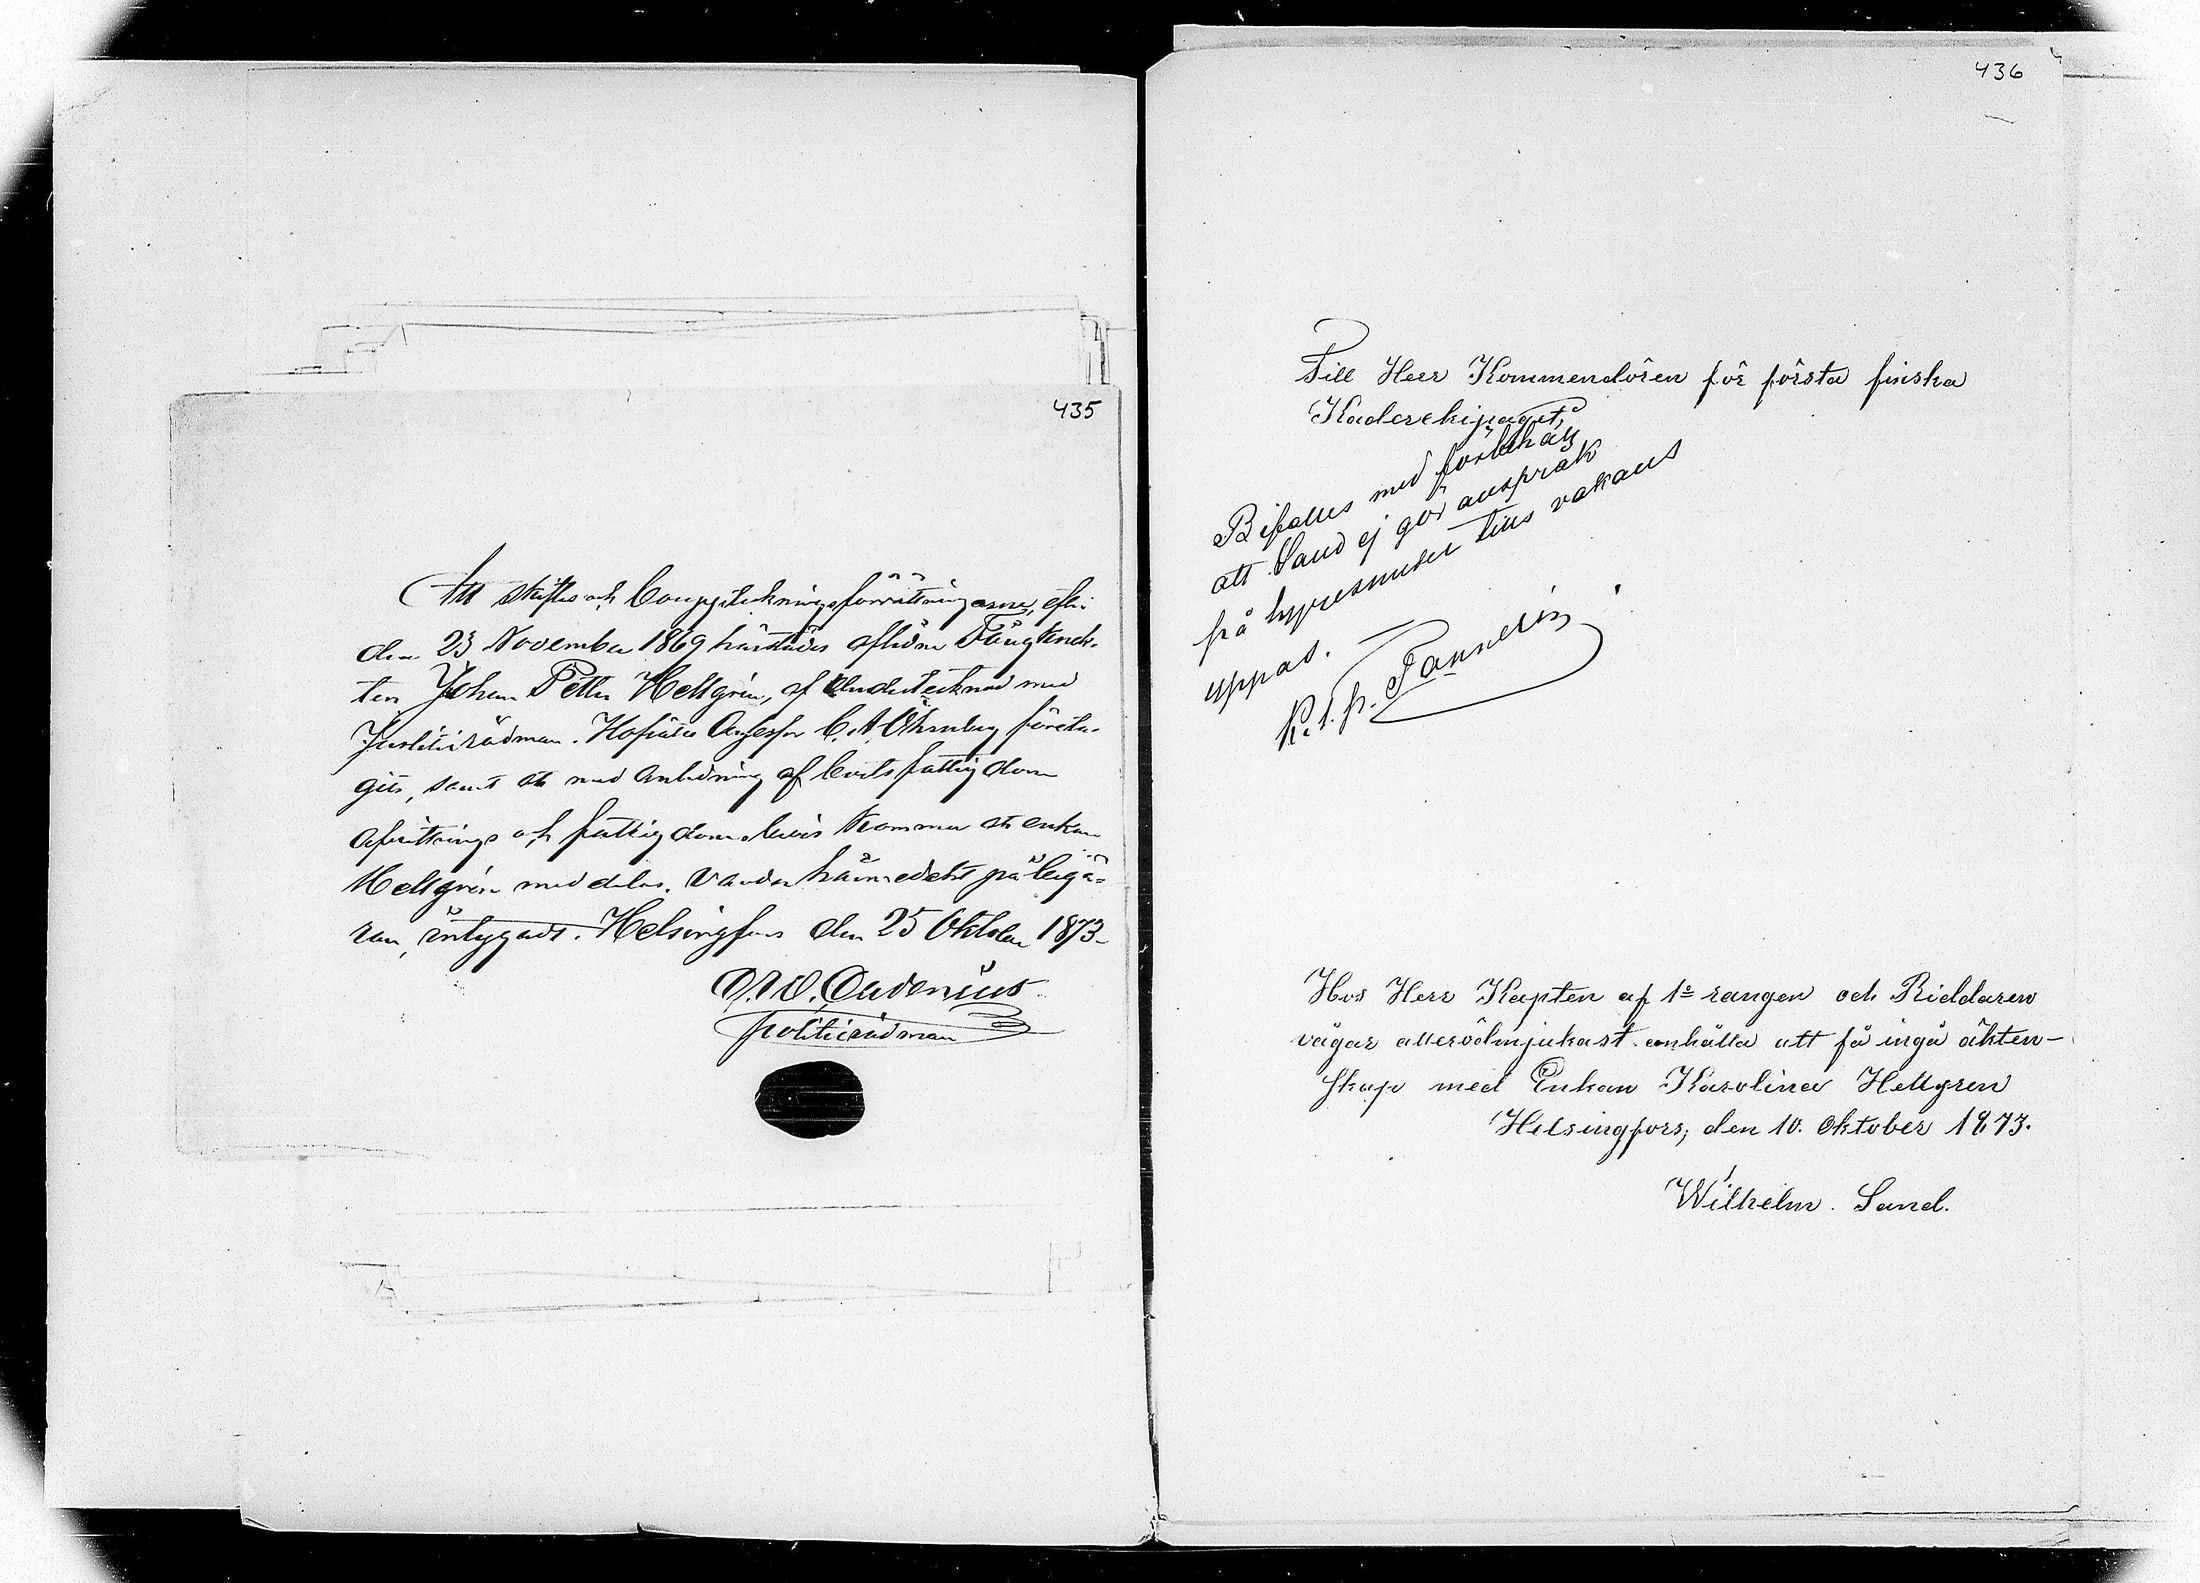 435
Att skiftes och bouppteckningsförrättningarne, efter
den 23 November 1869 härstädes aflidne Fångknek-
ten Johan Petter Hellgrén, af Undertecknad med
Justitierådman. Hofrätts Assessor C. A. Öhrnberg företa-
gits, samt att med anledning af boets fattigdom
afvittrings och fattigdomsbevis kommer att enkan
Hellgrén meddelas, varder härmedelst på begä-
ran, intygadt. Helsingfors den 25 Oktober 1873.
politierådman
436
Till Herr Kommendören för första finska
Kaderekipaget,
Bifalles med förbehåll
att Sand ej gör anspråk
på hyresmedel tills vakans
yppas.
Hos Herr Kapten af 1:º rangen och Riddaren
vågar allerödmjukast anhålla att få ingå äkten-
skap med Enkan Karolina Hellgren
Helsingfors, den 10. Oktober 1873.
Wilhelm. Sand.